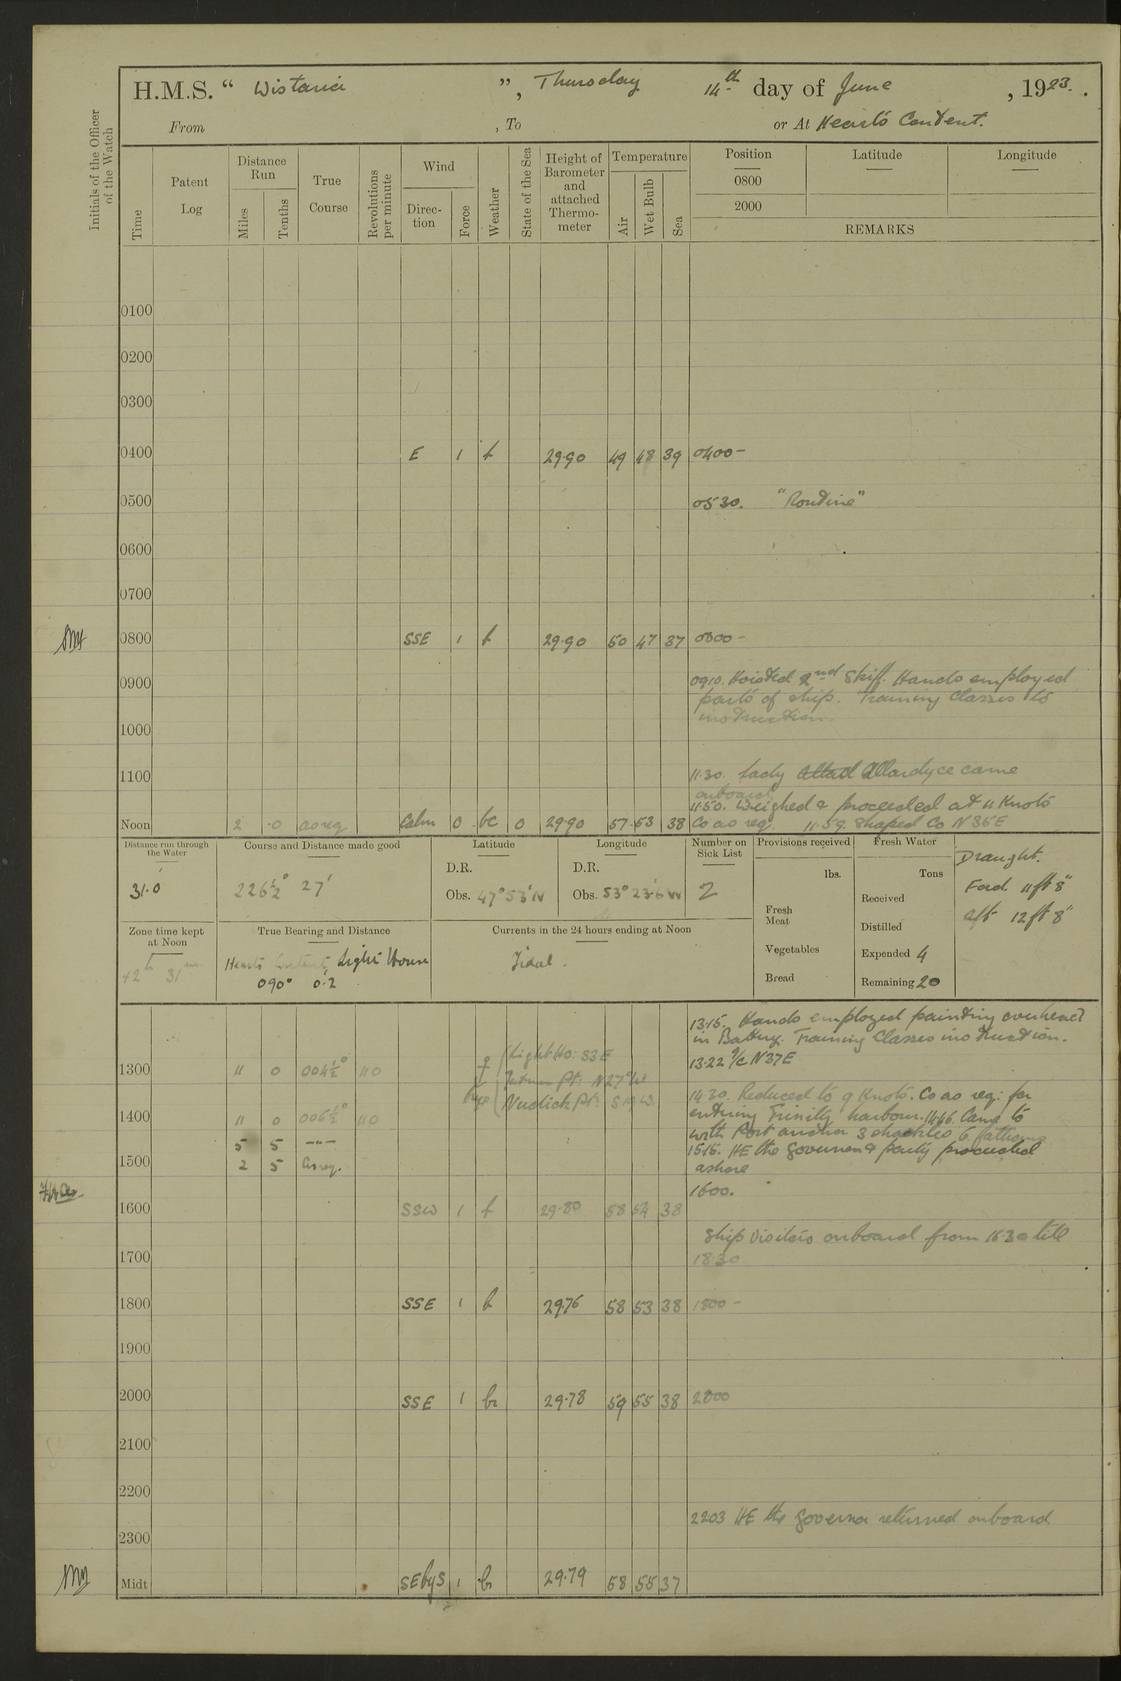 H.M.S. “ Wistaria ”, Thursday 14th day of June, 1923.
From , To or At Heart's Content.
Initials of the Officer of the Watch
Time
Patent Log
Distance Run
Miles Tenths
True Course
Revolutions per minute
Wind
Direc-tion Force
Weather
State of the Sea
Height of Barometer and attached Thermo-meter
Temperature
Air Wet Bulb Sea
Position Latitude Longitude
0800
2000
REMARKS
0100
0200
0300
0400 E 1 f 29.90 49 48 39 0400 -
0500 0530. "Routine"
0600
0700
0800 SSE 1 f 29.90 50 47 37 0800 -
0900 0910. Hoisted 2nd Skiff. Hands employed
parts of ship. Training Classes to
instruction
1000
1100 11.30. Lady Allardyce came
onboard
1150. Weighed & proceeded at 11 Knots
Noon 2 .0 as req Calm 0 bc 0 29.90 57 53 38 Co as req. 11.59. Shaped Co N35E
Distance run through the Water
31.0
Course and Distance made good
226½° 27'
Latitude
D.R.
Obs. 47° 53' N
Longitude
D.R.
Obs. 53° 23.6 W
Number on Sick List
2
Provisions received
lbs.
Fresh Meat
Vegetables
Bread
Fresh Water
Tons
Received
Distilled
Expended 4
Remaining 20
Draught.
Ford. 11ft 8"
Aft 12ft 8"
Zone time kept at Noon
+2h 31m
True Bearing and Distance
Hearts Content, Light House
090° 0.2
Currents in the 24 hours ending at Noon
Tidal.
1315. Hands employed painting overhead
in Battery. Training Classes instruction.
1300 11 0 004½° 110 Light Ho: S3E 13.22 a/c N37E
Pt: N27°W
1430. Reduced to 9 Knots. Co as req: for
1400 11 0 006½° 110 entering Trinity harbour. 1446. Came to
5 5 -"- with Port anchor 3 shackles 6 fathoms
1515. HE the Governor & party proceeded
1500 2 5 As req. ashore
1600.
1600 SSW 1 f 29.80 58 54 38
Ship Visitors onboard from 16.30 till
1700 1830
1800 SSE 1 b 29.76 58 53 38 1800 -
1900
2000 SSE 1 bc 29.78 59 55 38 2000
2100
2200
2203 HE the Governor returned onboard
2300
Midt SEbyS 1 bc 29.79 58 55 37